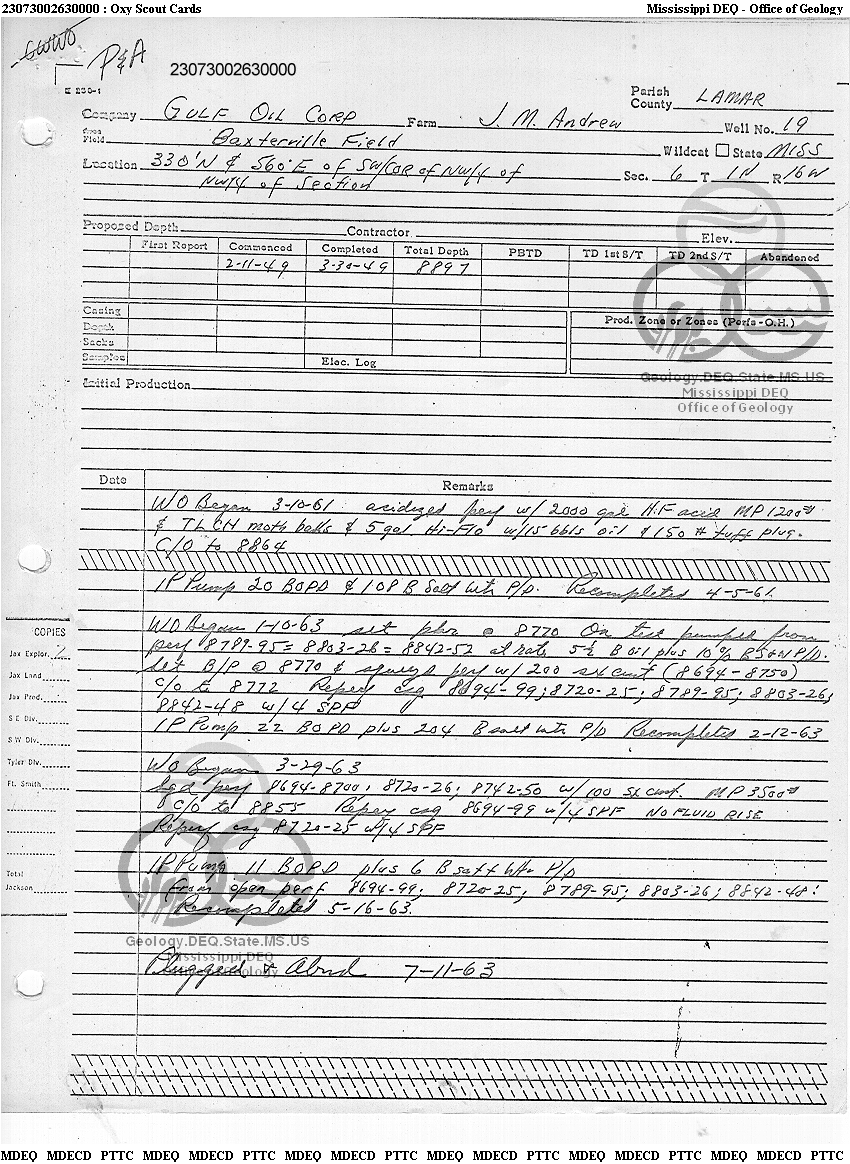 23073002630000 : Oxy Scout Cards Mississippi DEQ - Office of Geology
GWWO
P&A 23073002630000
E 230-1
Parish
County LAMAR
Company GULF OIL CORP Farm J. M. Andrew Well No. 19
Area
Field Baxterville Field Wildcat State MISS
Location 330'N & 560'E of SW/COR of NW/4 of Sec. 6 T 1N R 16W
NW/4 of Section
Proposed Depth Contractor Elev.
First Report Commenced Completed Total Depth PBTD TD 1st S/T TD 2nd S/T Abandoned
2-11-49 3-30-49 8897
Casing Prod. Zone or Zones (Perfs-O.H.)
Depth
Sacks
Samples Elec. Log
Geology.DEQ.State.MS.US
Initial Production
Mississippi DEQ
Office of Geology
Date Remarks
WO Began 3-10-61 acidized perf w/ 2000 gal H.F acid MP 1200#
& TLCH moth balls & 5 gal Hi-Flo w/15 bbls oil & 150 # tuff plug.
C/O to 8864
IP Pump 20 BOPD & 108 B Salt Wtr P/D. Recompleted 4-5-61.
COPIES
WO Began 1-10-63 set pkr @ 8770 On test pumped from
Jax Explor. perf 8789-95 = 8803-26 = 8842-52 at rate 5½ B oil plus 10% BS&W P/D.
Jax Land set B/P @ 8770 & squeeze perf w/ 200 sx cmt (8694-8750)
Jax Prod. C/O to 8772 Reperf csg 8694-99; 8720-25; 8789-95; 8803-26;
S E Div. 8842-48 w/4 SPF
S W Div. IP Pump 22 BOPD plus 204 B salt wtr P/D Recompleted 2-12-63
Tyler Div. WO Began 3-29-63
Ft. Smith Sqd perf 8694-8700; 8720-26; 8742-50 w/100 sx cmt. MP 3500#
C/O to 8855 Reperf csg 8694-99 w/4 SPF NO FLUID RISE
Reperf csg 8720-25 w/4 SPF
Total IP Pump 11 BOPD plus 6 B salt wtr P/D
Jackson from open perf 8694-99; 8720-25; 8789-95; 8803-26; 8842-48.
Recompleted 5-16-63.
Geology.DEQ.State.MS.US
Mississippi DEQ
Office of Geology
Plugged & Abnd 7-11-63
MDEQ MDECD PTTC MDEQ MDECD PTTC MDEQ MDECD PTTC MDEQ MDECD PTTC MDEQ MDECD PTTC MDEQ MDECD PTTC